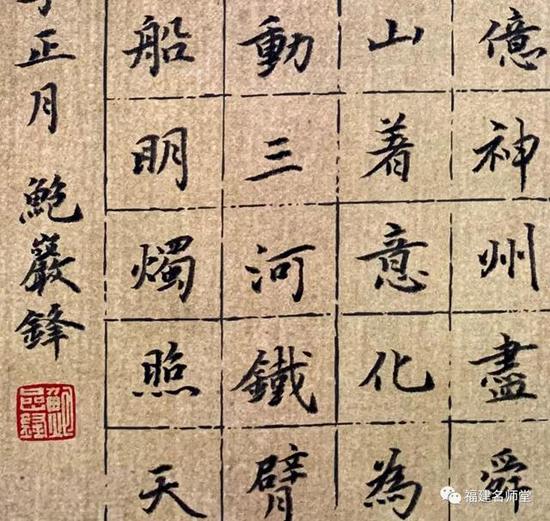 億神州盡舜
山著意化為
動三河鐵臂
船明燭照天
正月 鮑巖鋒
福建名师堂